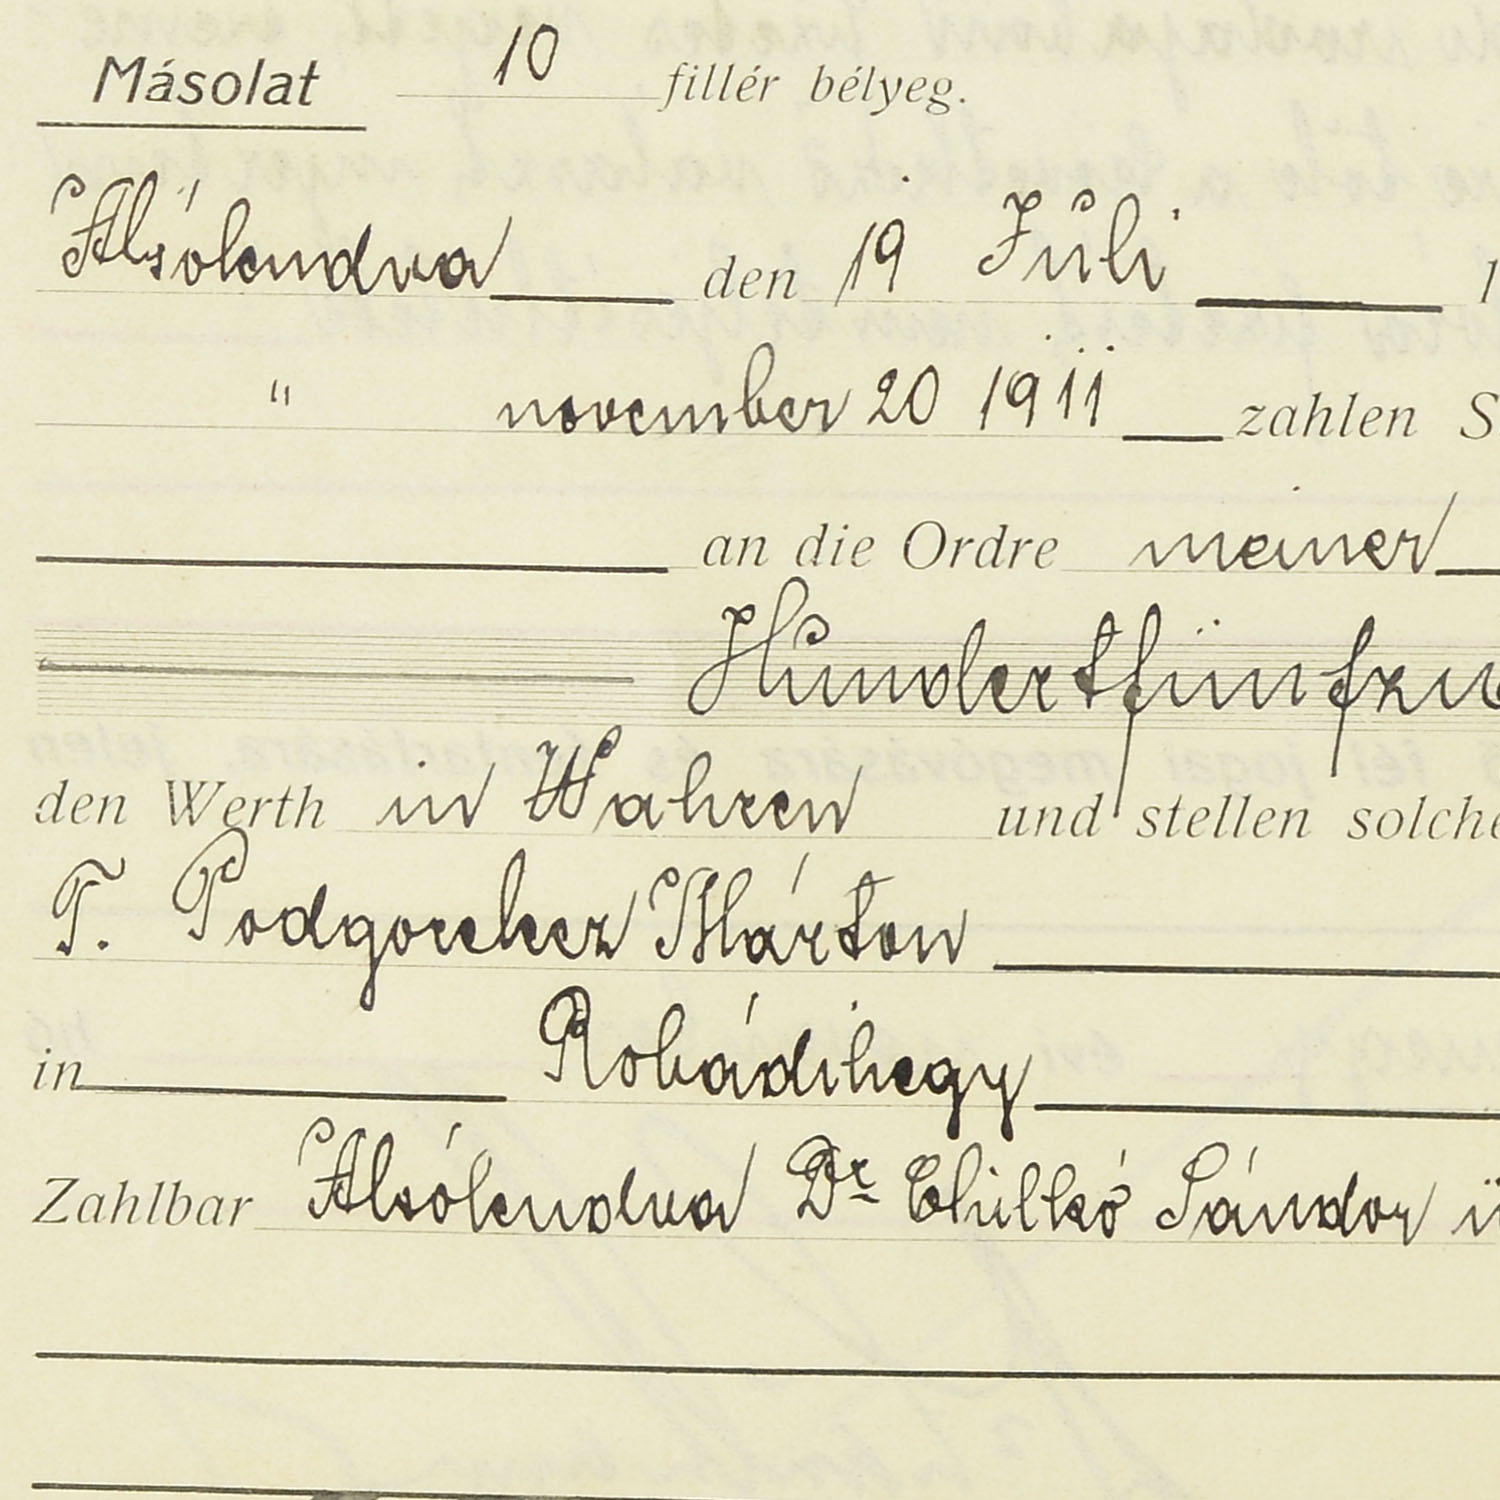 Másolat 10 fillér bélyeg.
Alsólendva den 19 Juli 1
" november 20 1911 zahlen S
an die Ordre meiner
Hundertfünfzu
den Werth in Wahren und stellen solche
T. Podgorelecz Márton
in Robádihegy
Zahlbar Alsólendva Dr Sándor ü